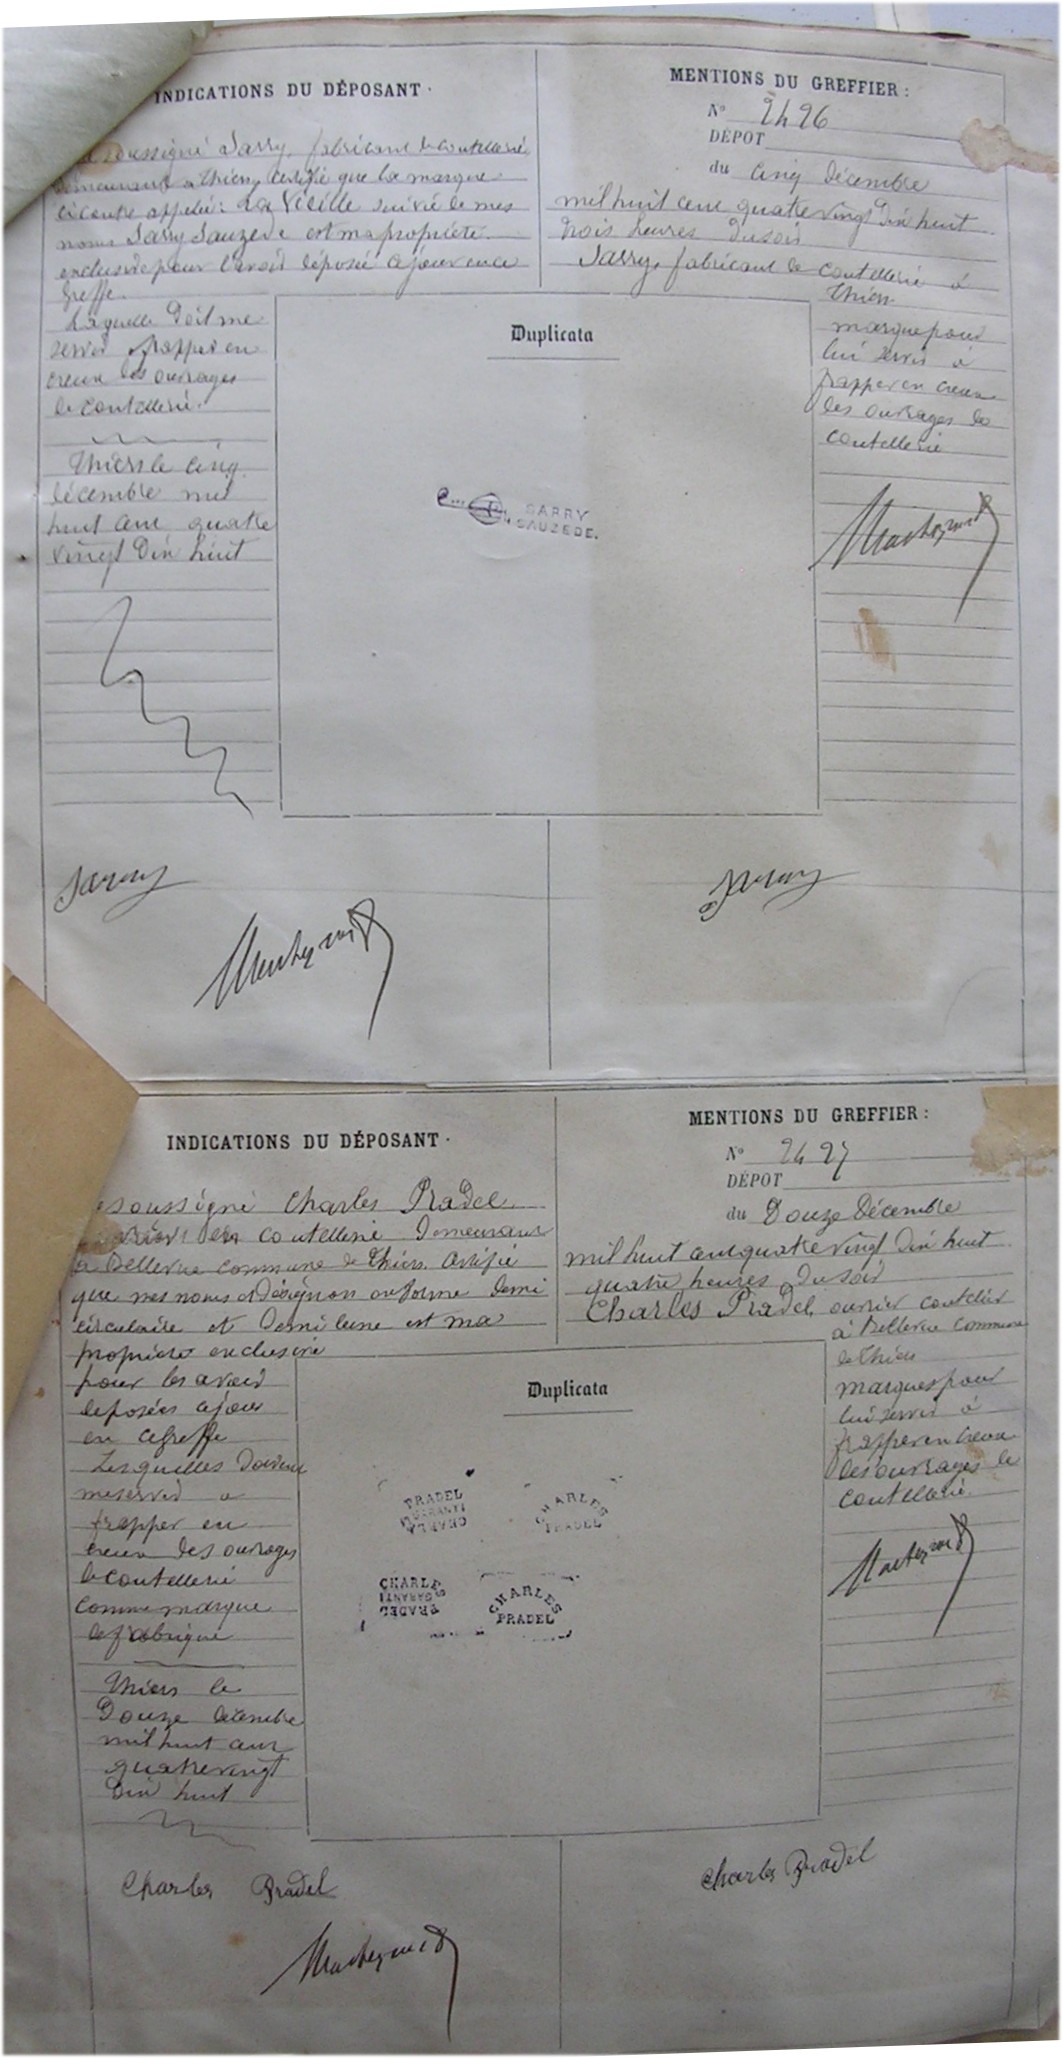 INDICATIONS DU DÉPOSANT.
soussigné Sarry, fabricant de coutellerie,
demeurant a Thiers, certifie que la marque
ci contre appelée: La Vielle suivie de mes
noms Sarry Sauzede est ma propriété
exclusive pour l'avoir déposée a jour en ce
Greffe.
Laquelle doit me
servir frapper en
creux les ouvrages
de coutellerie.
Thiers le cinq
décembre mil
huit cent quatre
vingt dix huit
MENTIONS DU GREFFIER:
N° 2496
DÉPOT
du cinq décembre
mil huit cent quatre vingt dix huit
trois heures du soir
Sarry, fabricant de coutellerie à
Thiers
marque pour
lui servir à
frapper en creux
des ouvrages de
coutellerie
Duplicata
SARRY
SAUZEDE.
Sarry
Sarry
INDICATIONS DU DÉPOSANT.
soussigné Charles Pradel
coutellerie demeurant
à Bellevue commune de Thiers certifie
que mes noms et désignon en forme demi
circulaire et demi lune est ma
propriété exclusive
pour les avoir
déposées a jour
en ce greffe
Lesquelles doivent
me servir a
frapper en
creux des ouvrages
de coutellerie
comme marque
de fabrique
Thiers le
Douze décembre
mil huit cent
quatre vingt
dix huit
MENTIONS DU GREFFIER:
N° 2497
DÉPOT
du Douze Décembre
mil huit cent quatre vingt dix huit
quatre heures du soir
Charles Pradel, ouvrier coutelier
à Bellevue commune
de Thiers
marques pour
lui servir à
frapper en creux
des ouvrages de
coutellerie.
Duplicata
PRADEL
GARANTI
CHARLES
PRADEL
CHARLES
GARANTI
PRADEL
CHARLES
PRADEL
Charles Pradel
Charles Pradel